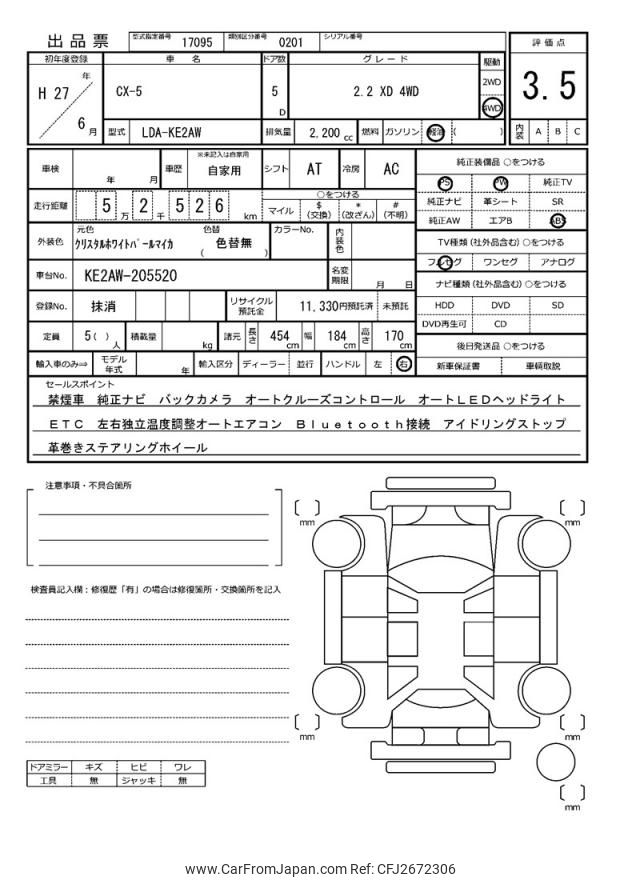 出品票 型式指定番号 17095 類別区分番号 0201 シリアル番号
評価点
3.5
内装 A B C
初年度登録 車名 ドア数 グレード 駆動
H 27 年 6 月
CX-5 5 D 2.2 XD 4WD 2WD 4WD
型式 LDA-KE2AW 排気量 2,200 cc 燃料 ガソリン 軽油 ( )
車検 年 月 車歴 ※未記入は自家用 自家用 シフト AT 冷房 AC
走行距離 5 万 2 千 5 2 6 km
○をつける
マイル $ (交換) * (改ざん) # (不明)
外装色 元色 クリスタルホワイトパールマイカ 色替 ( 色替無 ) カラーNo. 内装色
車台No. KE2AW-205520 名変期限 月 日
登録No. 抹消 リサイクル預託金 11,330円預託済 未預託
定員 5( )人 積載量 kg 諸元 長さ 454 cm 幅 184 cm 高さ 170 cm
輸入車のみ⇒ モデル年式 年 輸入区分 ディーラー 並行 ハンドル 左 右
純正装備品 ○をつける
PS PW 純正TV
純正ナビ 革シート SR
純正AW エアB ABS
TV種類 (社外品含む) ○をつける
フルセグ ワンセグ アナログ
ナビ種類 (社外品含む) ○をつける
HDD DVD SD
DVD再生可 CD
後日発送品 ○をつける
新車保証書 車輌取説
セールスポイント
禁煙車 純正ナビ バックカメラ オートクルーズコントロール オートLEDヘッドライト
ETC 左右独立温度調整オートエアコン Bluetooth接続 アイドリングストップ
革巻きステアリングホイール
注意事項・不具合箇所
検査員記入欄：修復歴「有」の場合は修復箇所・交換箇所を記入
ドアミラー キズ ヒビ ワレ
工具 無 ジャッキ 無
mm
mm
mm
mm
mm
www.CarFromJapan.com Ref: CFJ2672306